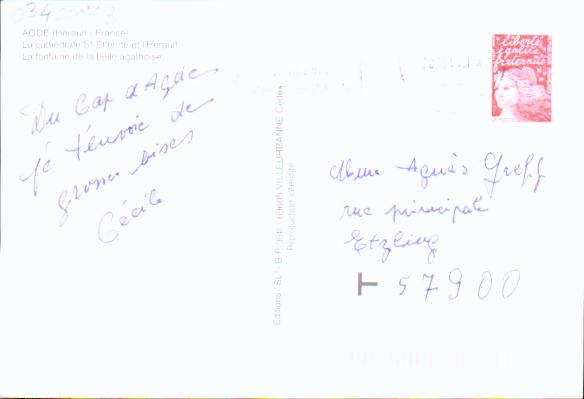 AGDE (Hérault - France)
La cathédrale St Etienne et l'Hérault.
La fontaine de la belle agathoise.
Du Cap d'Agde
je t'envoie de
grosses bises
Cécile
Editions "SL" - B.P. 394 - 69605 VILLEURBANNE Cedex
Reproduction interdite
liberté
égalité
fraternité
Mme Agnès Greff
rue principale
Etzling
T 57900